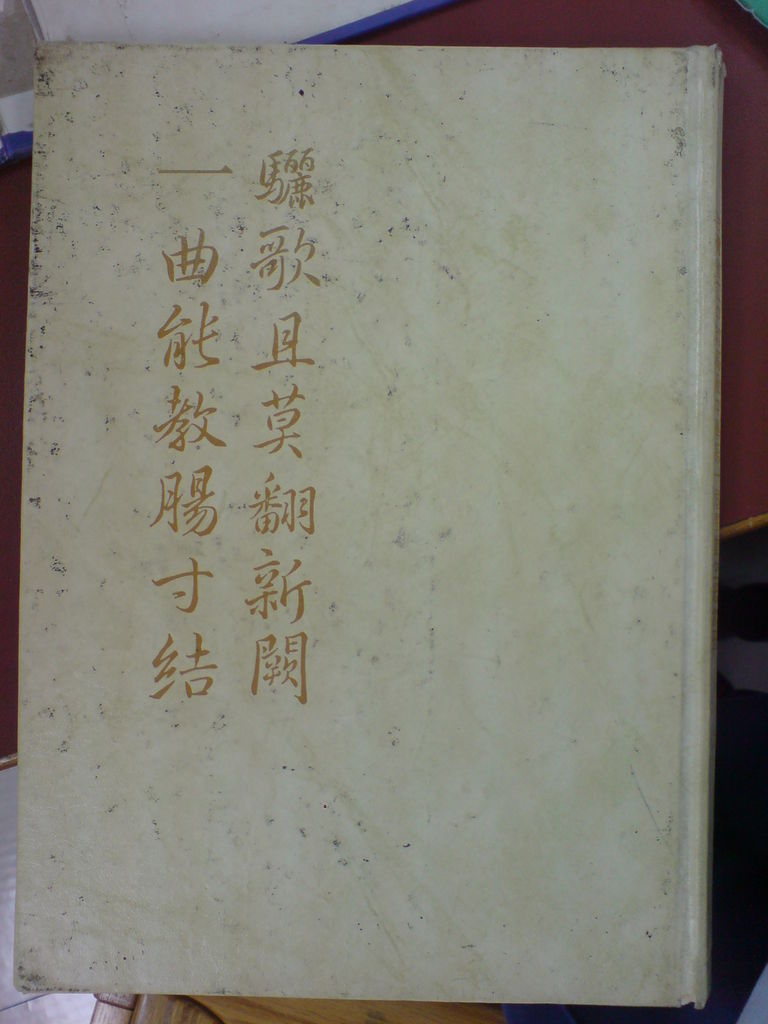 驪歌且莫翻新闋
一曲能教腸寸結